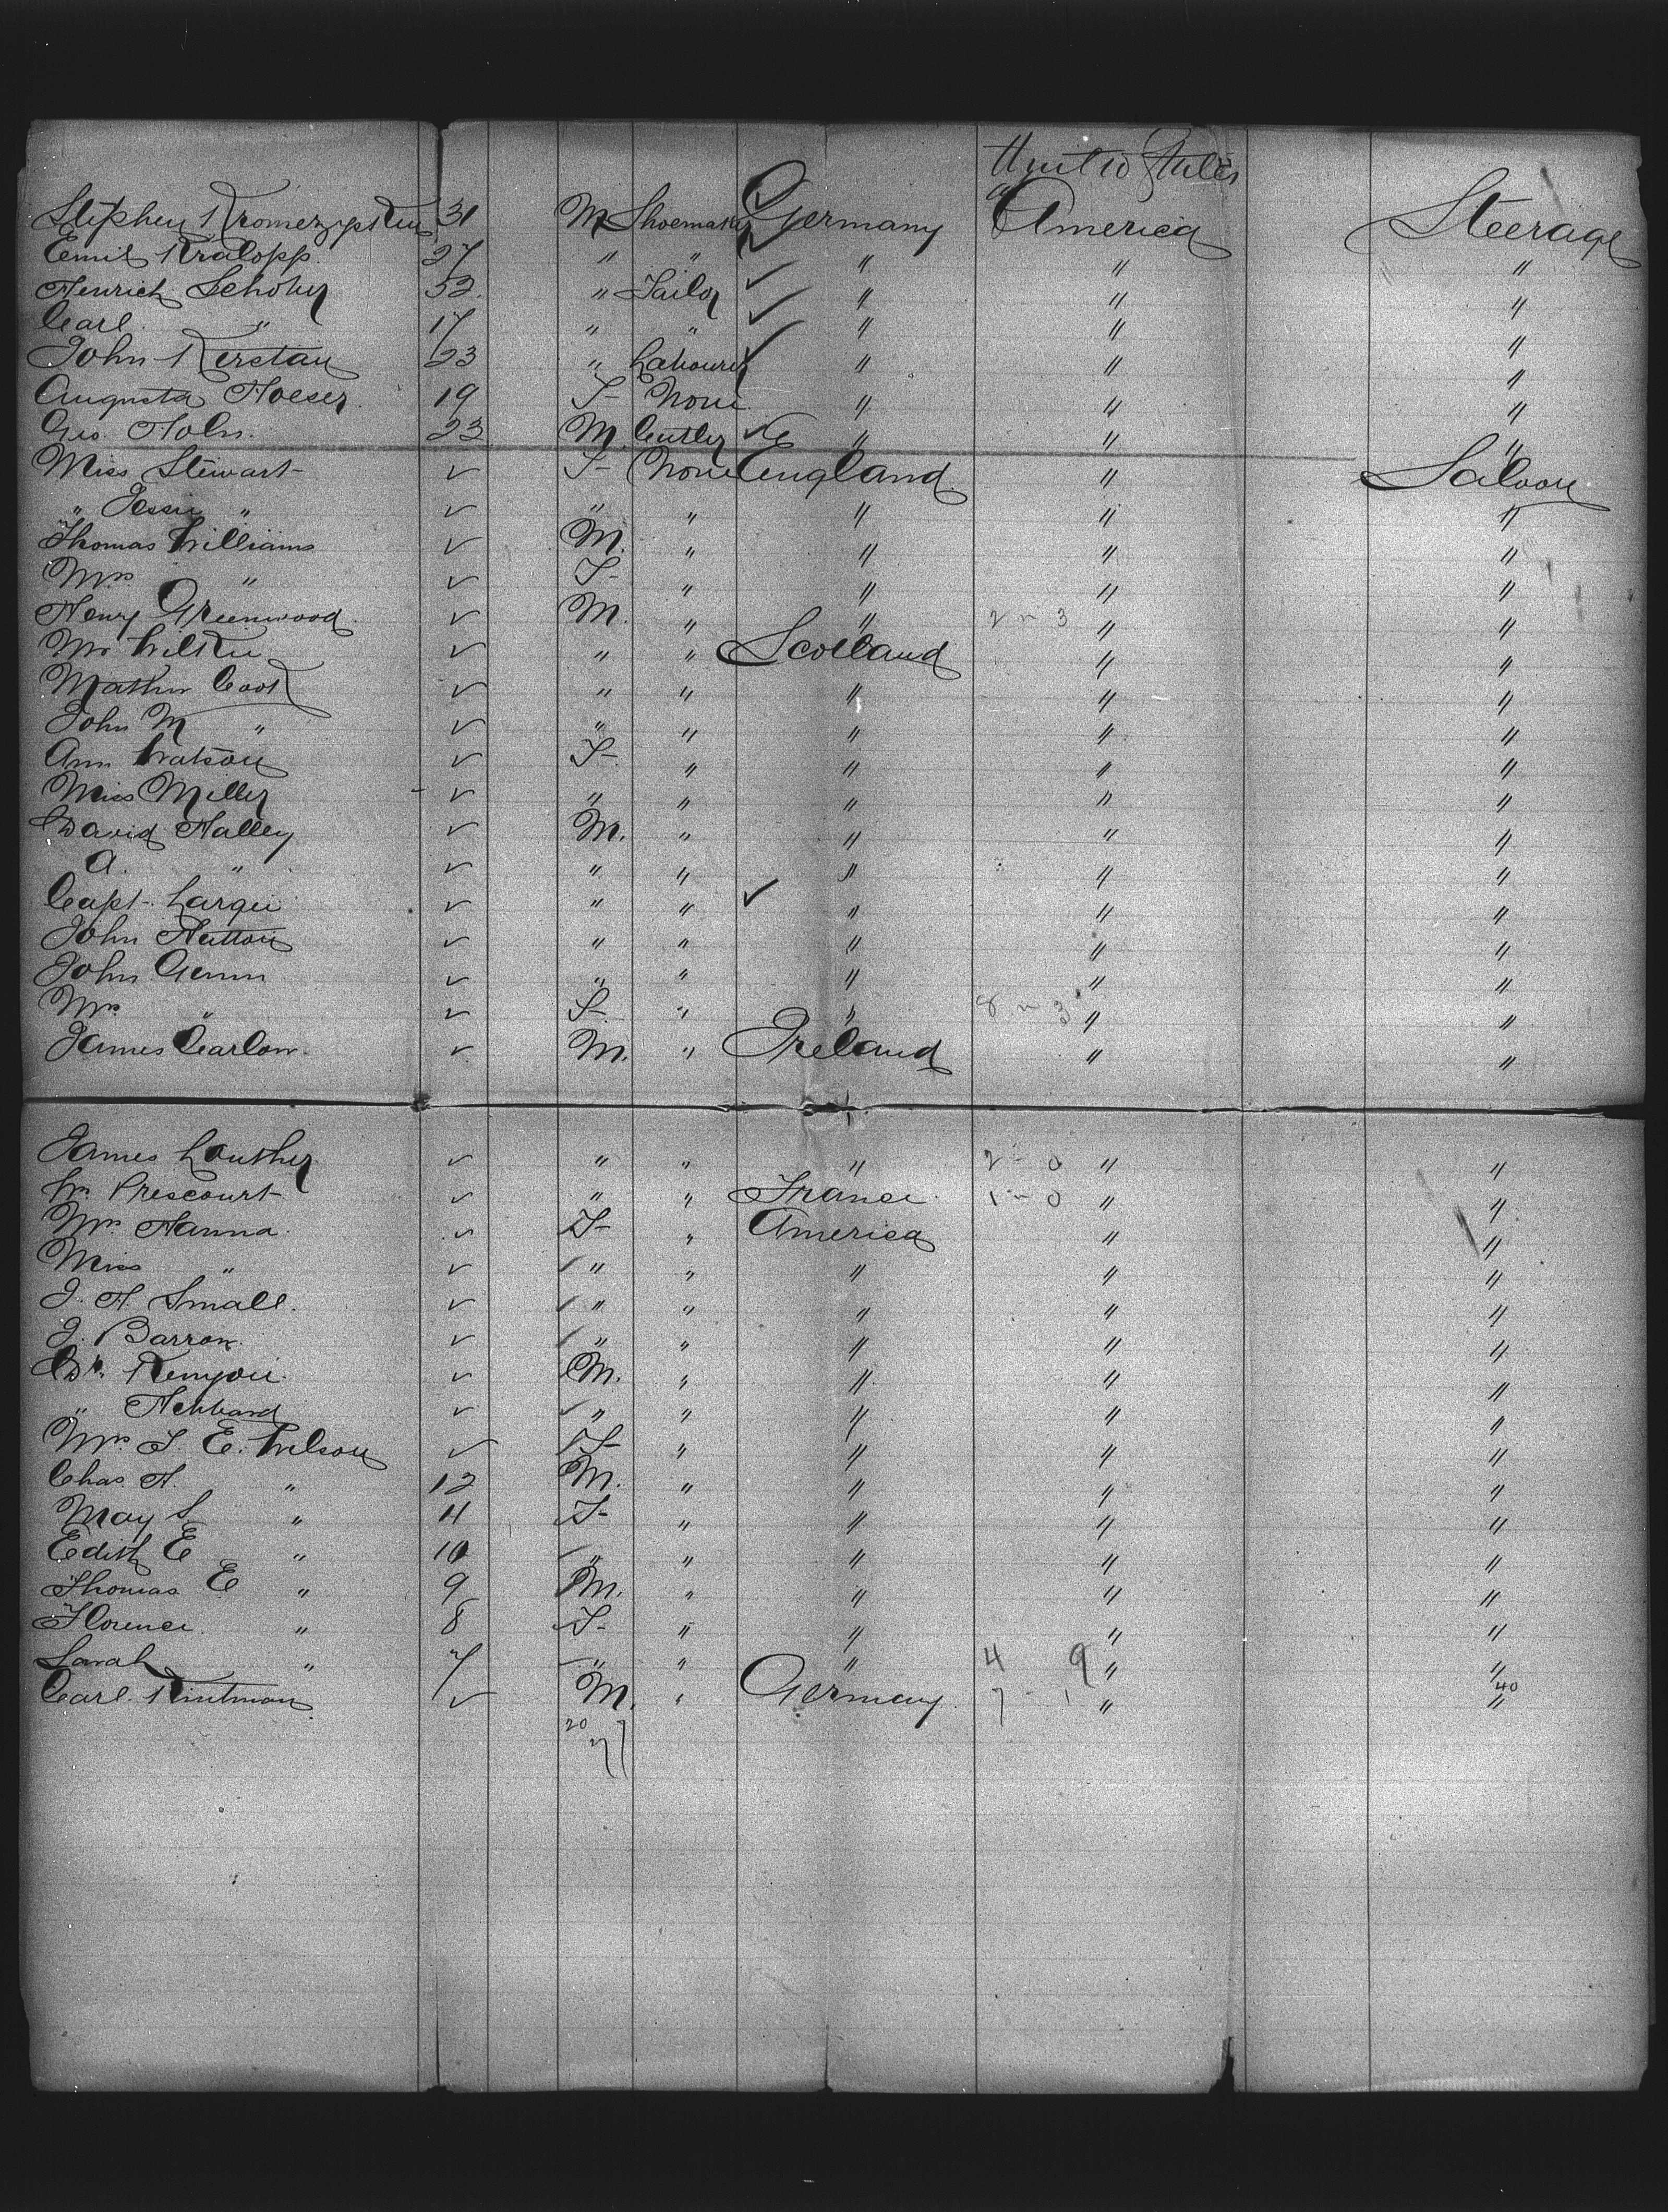 United States
Stephen 31 M Shoemaker Germany of America Steerage
Emil Kralopp 27 " " " " "
Henrich Schober 52 " Tailor " " "
Carl " 17 " " " " "
John Kerstau 23 " Labourer " " "
Augusta Hoeser 19 F None " " "
Geo. Holn. 23 M. Cutler " " "
Miss Stewart ✓ F None England " Saloon
" Jessie " ✓ " " " " "
Thomas Williams ✓ M. " " " "
Mrs " ✓ F " " " "
Henry Greenwood ✓ M. " " 2 " 3 " "
Mr Wilkie ✓ " " Scotland " "
Mathew Cook ✓ " " " " "
John M " ✓ " " " " "
Ann Watson ✓ F " " " "
Miss Miller ✓ " " " " "
David Halley ✓ M. " " " "
A. " ✓ " " " " "
Capt. Largie ✓ " " " " "
John Hutton ✓ " " " " "
John Gunn ✓ " " " " "
Mrs " ✓ F " " 8 " 3 " "
James Carlow ✓ M. " Ireland " "
James Louther ✓ " " " 2 - 0 " "
Wm Prescourt ✓ " " France 1 " 0 " "
Mrs Hanna ✓ F " America " "
Miss " ✓ " " " " "
J. H. Small. ✓ " " " " "
J. Barron ✓ " " " " "
Dr. Kenyon ✓ M. " " " "
" Hebbard ✓ " " " " "
Mrs. T. E. Wilson ✓ F " " " "
Chas. H. " 12 M. " " " "
May S " 11 F " " " "
Edith E " 10 " " " " "
Thomas E " 9 M. " " " "
Florence " 8 F " " " "
Sarah " 7 " " " 4 9 " "
Carl Kintman ✓ M. " Germany 7 - 1 " 40 "
20
27